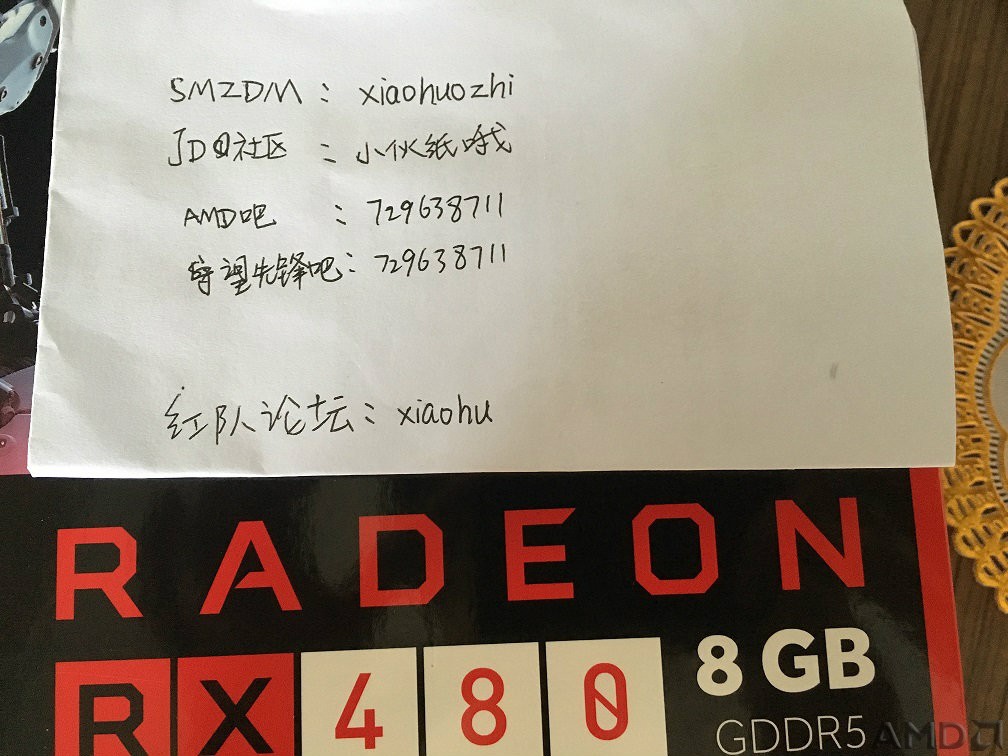 SMZDM : xiaohuozhi
JD社区 : 小伙纸哦
AMD吧 : 729638711
守望先锋吧 : 729638711
红队论坛 : xiaohu
RADEON
RX 480 8 GB
GDDR5